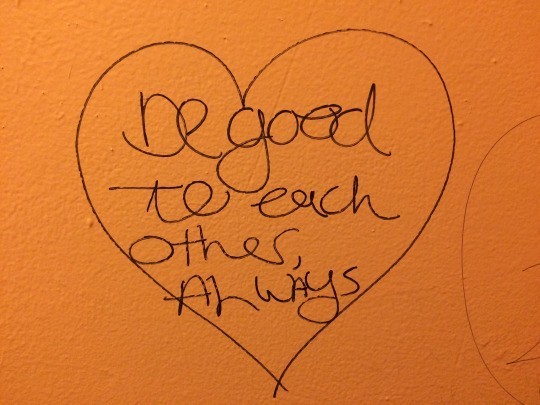 Be good
to each
other,
ALWAYS